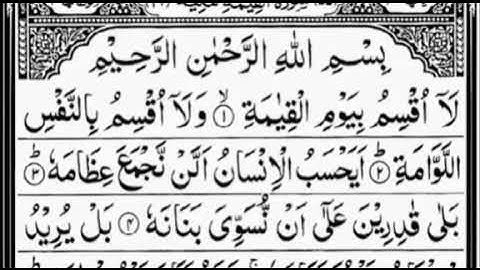 بِسْمِ اللهِ الرَّحْمٰنِ الرَّحِيْمِ
لَآ اُقْسِمُ بِيَوْمِ الْقِيٰمَةِ ۙ﴿۱﴾ وَلَآ اُقْسِمُ بِالنَّفْسِ
اللَّوَّامَةِ ؕ﴿۲﴾ اَيَحْسَبُ الْاِنْسَانُ اَلَّنْ نَّجْمَعَ عِظَامَهٗ ؕ﴿۳﴾
بَلٰى قٰدِرِيْنَ عَلٰٓى اَنْ نُّسَوِّيَ بَنَانَهٗ ﴿۴﴾ بَلْ يُرِيْدُ